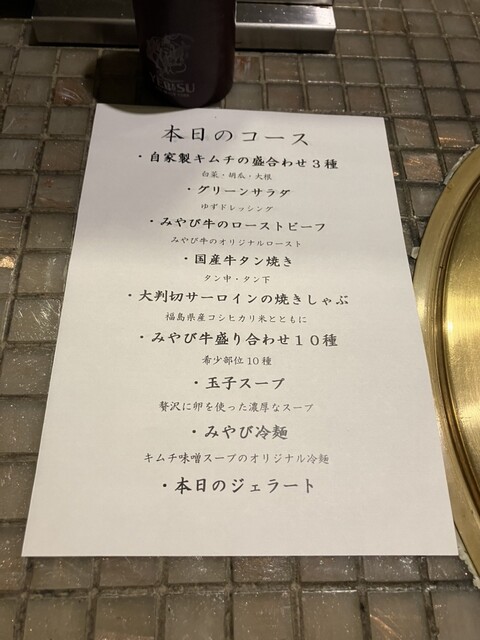 YEBISU
本日のコース
・自家製キムチの盛合わせ３種
白菜・胡瓜・大根
・グリーンサラダ
ゆずドレッシング
・みやび牛のローストビーフ
みやび牛のオリジナルロースト
・国産牛タン焼き
タン中・タン下
・大判切サーロインの焼きしゃぶ
福島県産コシヒカリ米とともに
・みやび牛盛り合わせ１０種
希少部位10種
・玉子スープ
贅沢に卵を使った濃厚なスープ
・みやび冷麺
キムチ味噌スープのオリジナル冷麺
・本日のジェラート